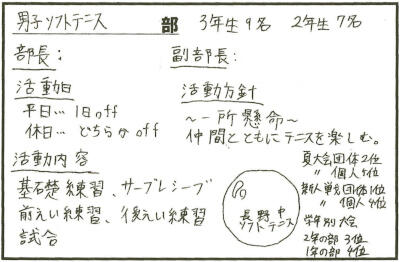 男子ソフトテニス 部 3年生9名 2年生7名
部長: 副部長:
活動日
平日…1日off
休日…どちらかoff
活動方針
〜一所懸命〜
仲間とともにテニスを楽しむ。
活動内容
基石楚練習、サーブレシーブ
前えい練習、後えい練習
試合
長野中
ソフトテニス
夏大会団体2位
〃 個人5位
新人戦団体1位
〃 個人4位
学年別大会
2年の部 3位
1年の部 4位